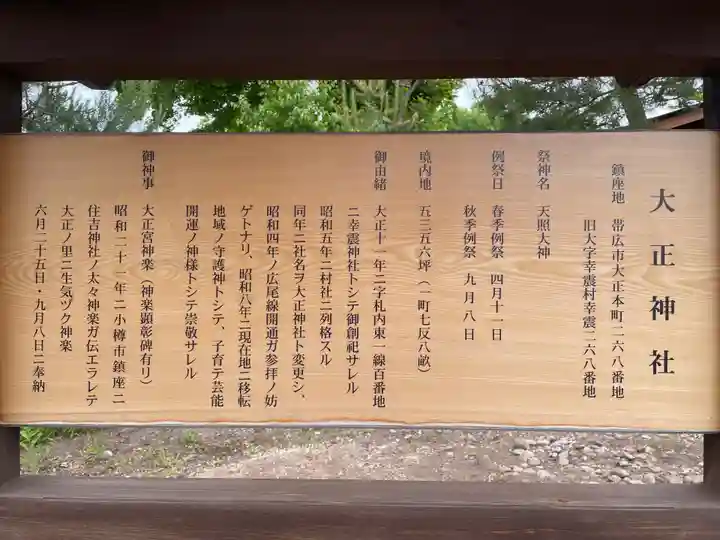 大正神社
鎮座地 帯広市大正本町二六八番地
旧大字幸震村幸震二六八番地
祭神名 天照大神
例祭日 春季例祭 四月十一日
秋季例祭 九月八日
境内地 五三五六坪(一町七反八畝)
御由緒 大正十一年ニ字札内東一線百番地
ニ幸震神社トシテ御創祀サレル
昭和五年ニ村社ニ列格スル
同年ニ社名ヲ大正神社ト変更シ、
昭和四年ノ広尾線開通ガ参拝ノ妨
ゲトナリ、昭和八年ニ現在地ニ移転
地域ノ守護神トシテ、子育テ芸能
開運ノ神様トシテ崇敬サレル
御神事 大正宮神楽(神楽顕彰碑有リ)
昭和二十一年ニ小樽市鎮座ニ
住吉神社ノ太々神楽ガ伝エラレテ
大正ノ里ニ生気ヅク神楽
六月二十五日・九月八日ニ奉納